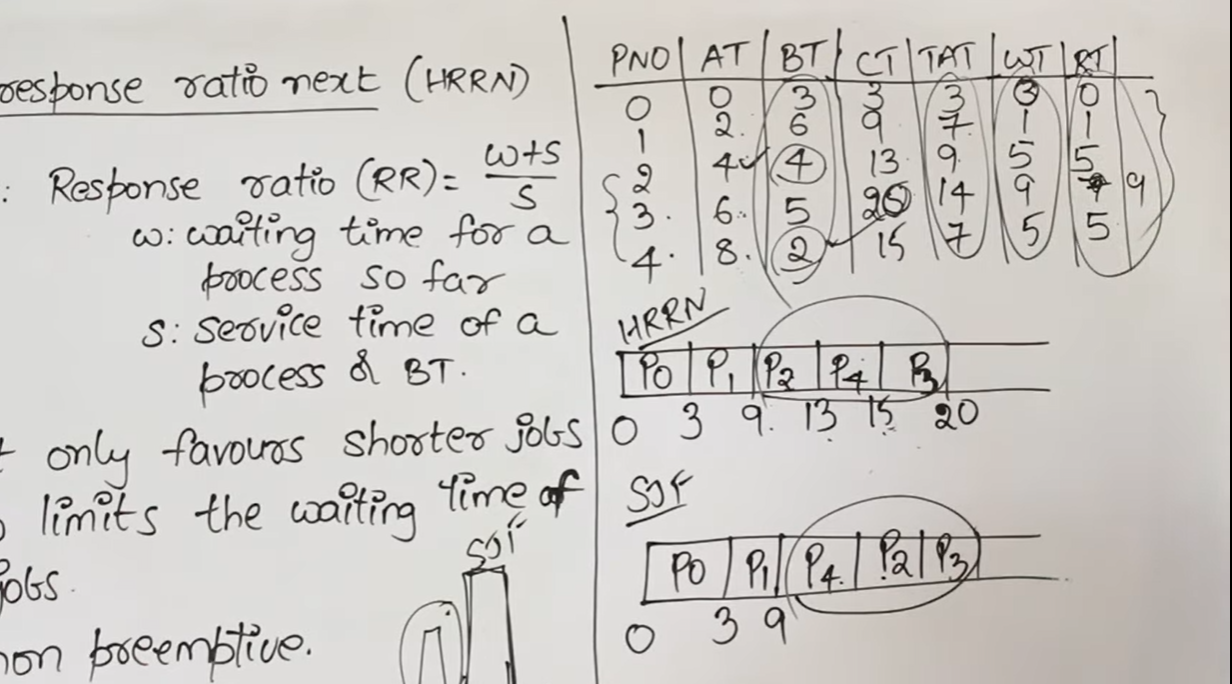 response ratio next (HRRN)
: Response ratio (RR) = w+s
s
w: waiting time for a
process so far
s: service time of a
process & BT.
only favours shorter jobs
limits the waiting time of
jobs.
non preemptive.
SJF
PNO AT BT CT TAT WT RT
0 0 3 3 3 0 0
1 2 6 9 7 1 1
2 4 4 13 9 5 5
3. 6. 5 20 14 9 9
4. 8. 2 15 7 5 5
HRRN
P0 P1 P2 P4 P3
0 3 9 13 15 20
SJF
P0 P1 P4 P2 P3
0 3 9